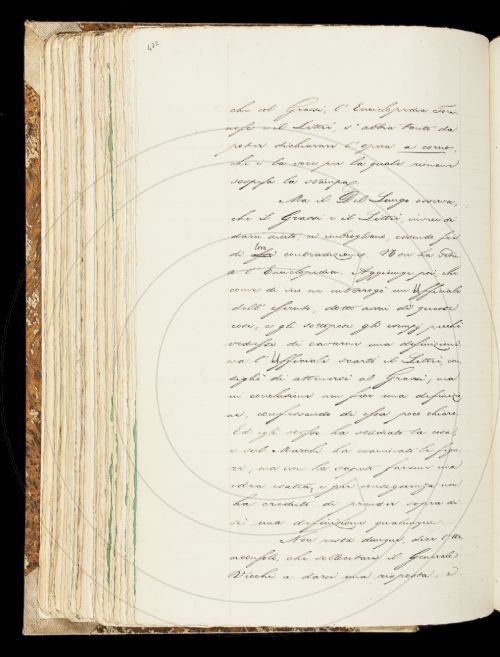 432
che col Grassi, l'Enciclopedia Tori-
nese e il Littré, s'abbia tanto da
poter dichiarare l'opera a corno,
che è la voce per la quale rimane
sospesa la stampa.
Ma il Del Lungo osserva,
che il Grassi e il Littré, invece di
darci aiuto, ci imbrogliano, essendo fra
di loro contradizione. Non ha fede
a l'Enciclopedia. Aggiunge poi, che
come di ciò ne interrogò un Uffiziale
dell'esercito, dotto assai di queste
cose, e gli sottopose gli esempj, perchè
vedesse di cavarne una definizione
ma l'Uffiziale scartò il Littré, con-
sigliò di attenersi al Grassi, ma
in conclusione non fece una definizio
ne, confessando di esser poco chiaro.
Ed egli stesso ha studiato la cosa,
e sul Marchi ha esaminato le figu-
re, ma non ha saputo farsene una
idea esatta, e per conseguenza non
ha creduto di prender sopra di
sè una definizione qualunque.
Non resta dunque, dice l'
che sollecitare il Generale
Vecchi a darci una risposta, e